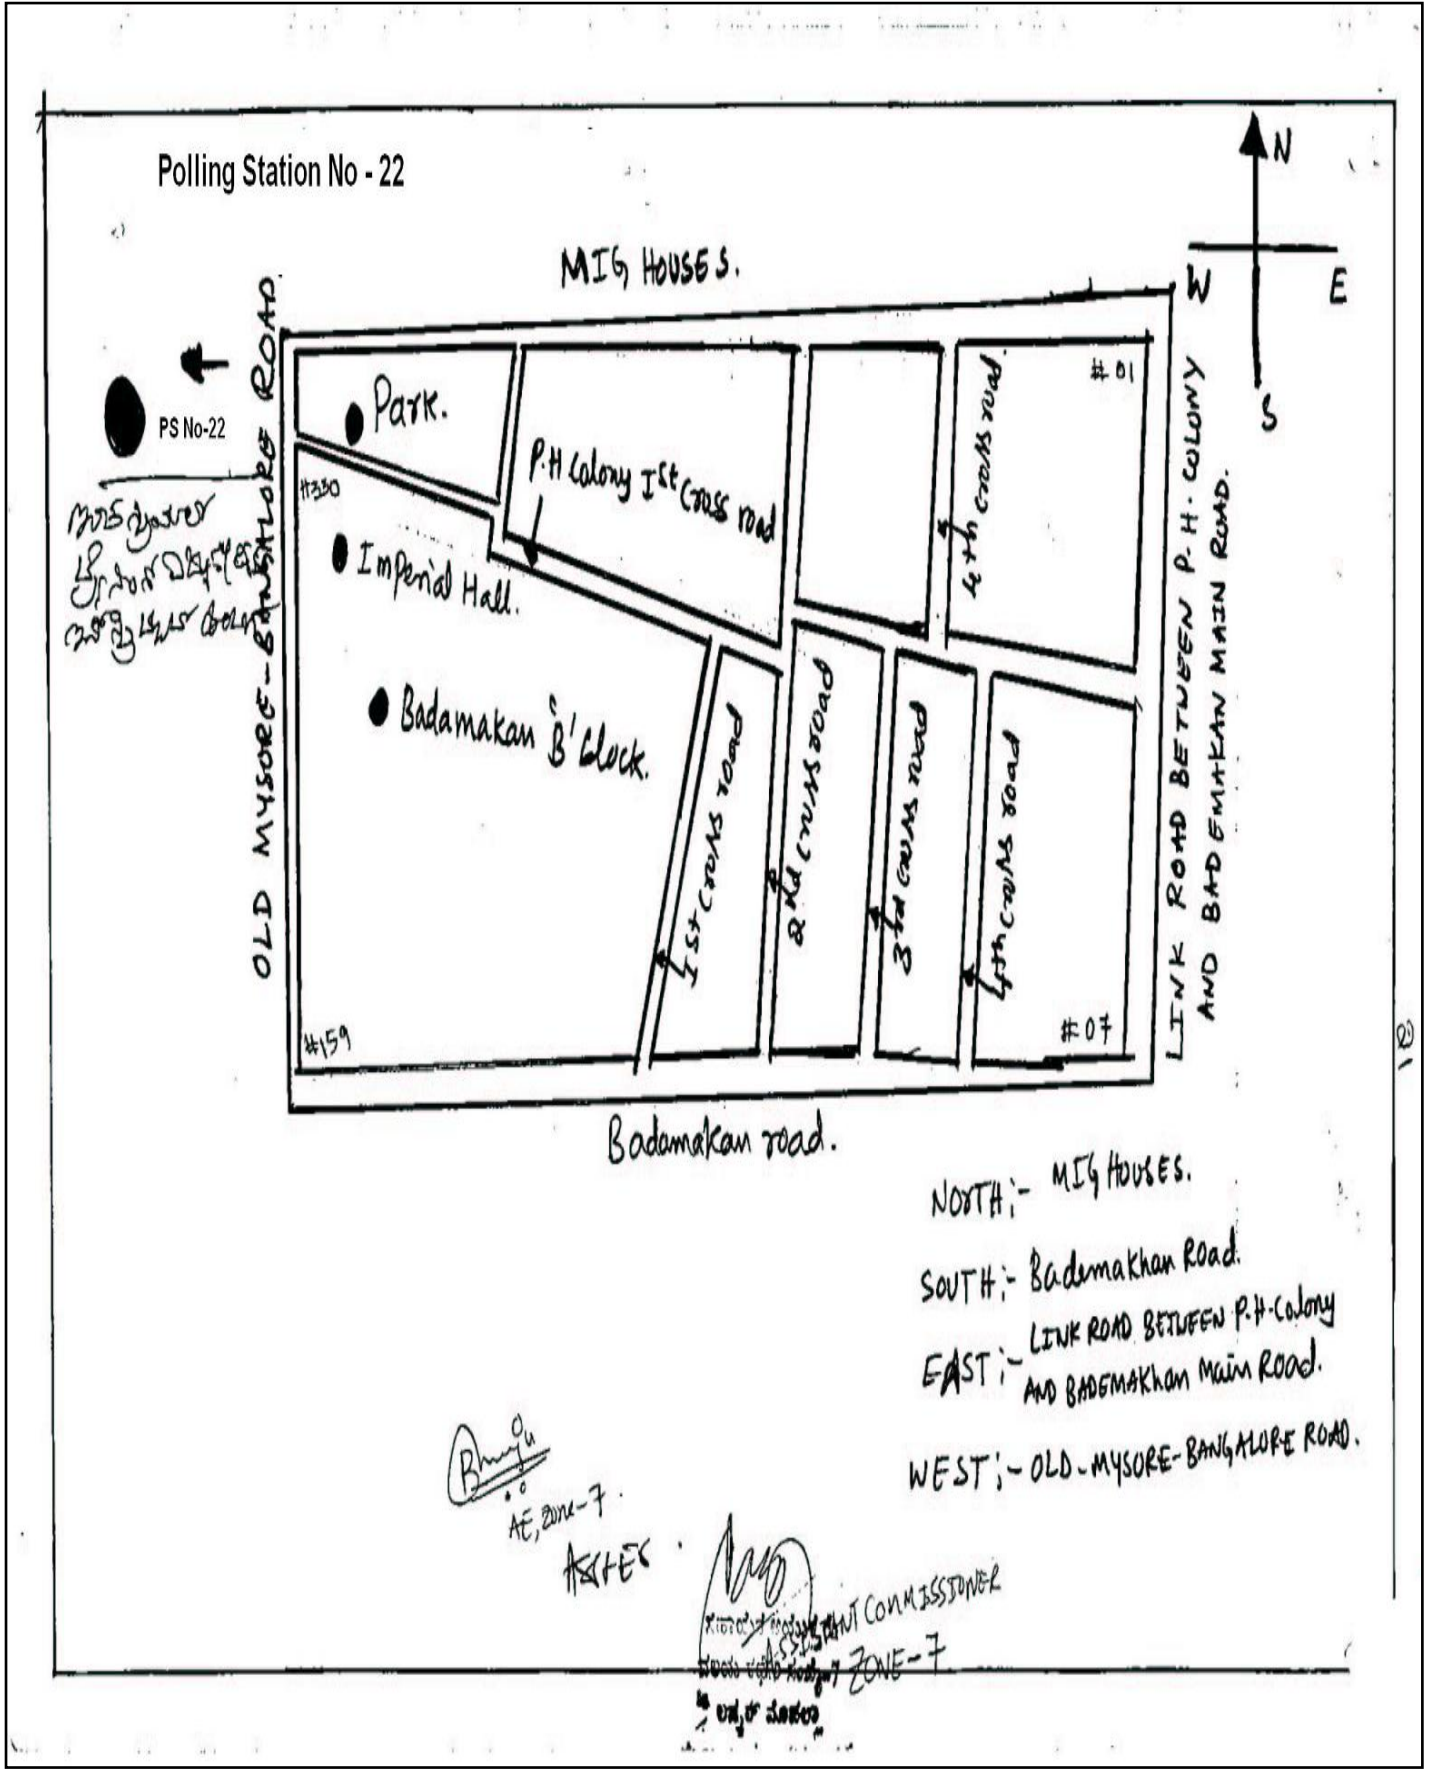 Polling Station No - 22
N
W E
S
MIG HOUSES.
OLD MYSORE-BANGALORE ROAD.
PS No-22
Park.
#330
P.H Colony Ist Cross road
4th cross road.
#01
Imperial Hall.
Badamakan "B' block.
1st cross road
2nd cross road
3rd cross road
4th cross road
#159
#07
LINK ROAD BETWEEN P.H. COLONY
AND BADEMAKAN MAIN ROAD.
21
Badamakan road.
NORTH:- MIG HOUSES.
SOUTH:- Bademakhan Road.
EAST:- LINK ROAD BETWEEN P.H-Colony
AND BADEMAKhan Main Road.
WEST:- OLD-MYSORE-BANGALORE ROAD.
AE, Zone-7.
ASSISTANT COMMISSIONER
ZONE-7